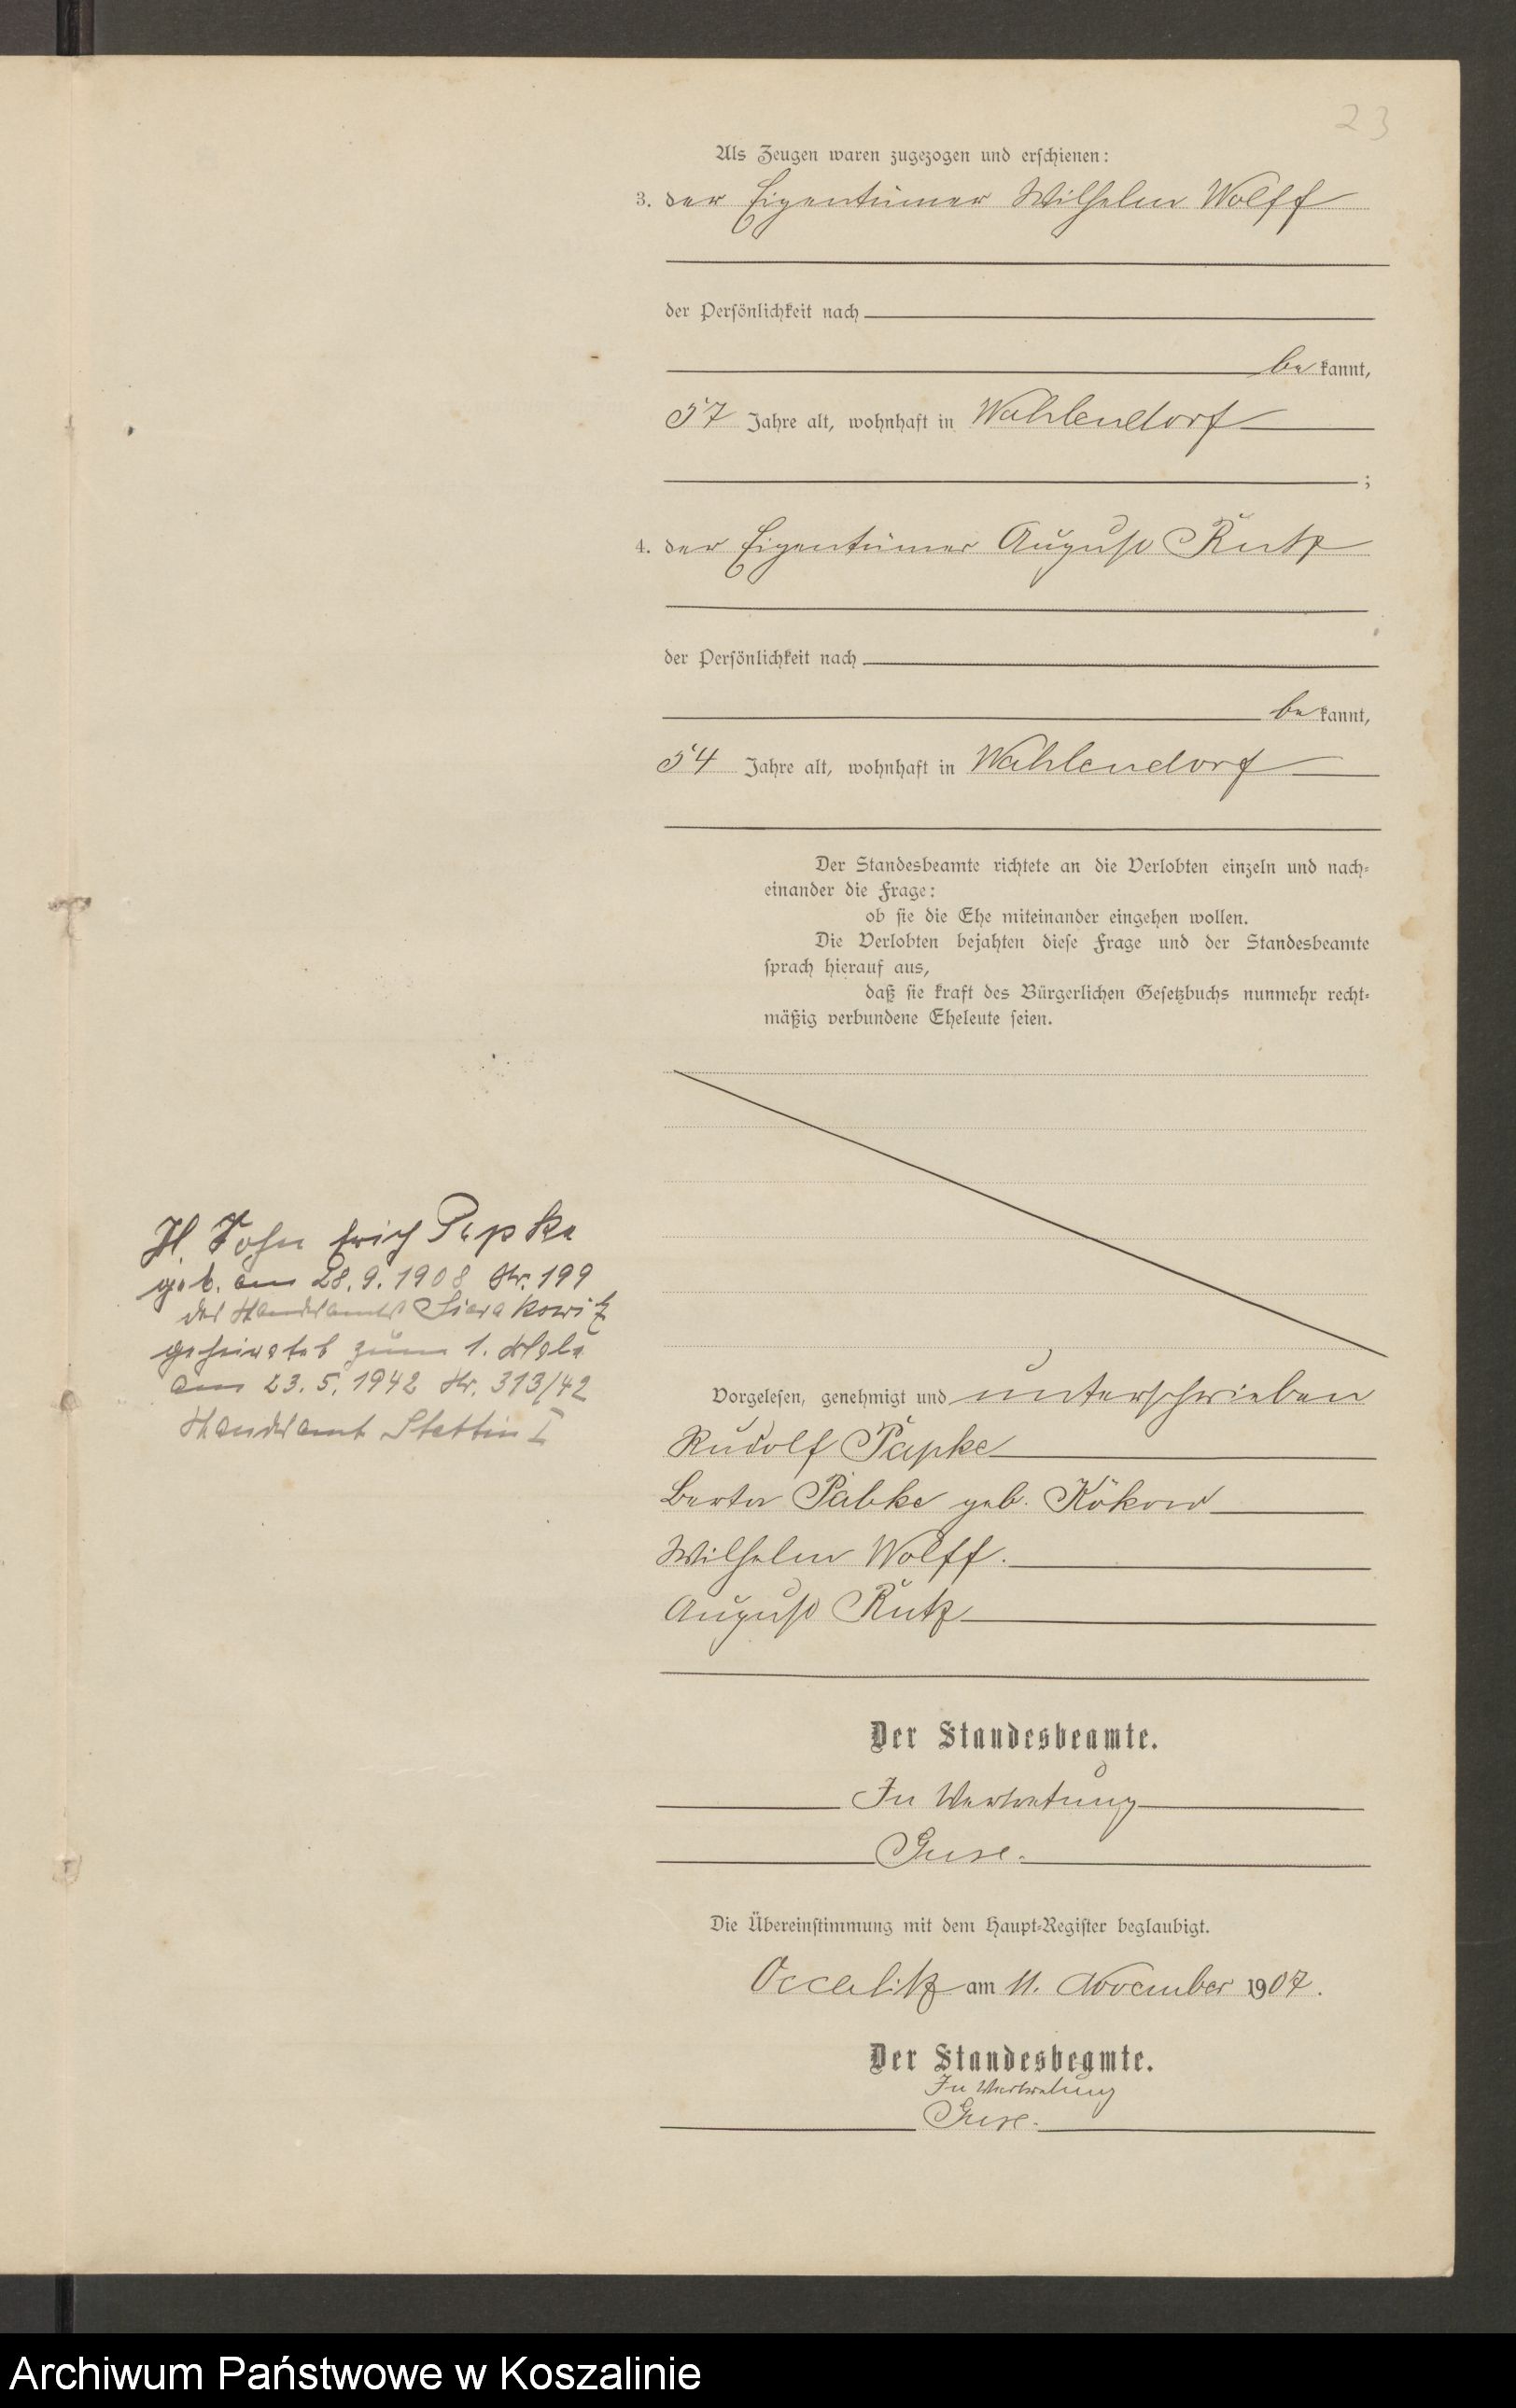 23
Als Zeugen waren zugezogen und erschienen:
3. der Eigentümer Wilhelm Wolff
der Persönlichkeit nach
be kannt,
57 Jahre alt, wohnhaft in Wahlendorf
;
4. der Eigentümer August Rutz
der Persönlichkeit nach
be kannt,
54 Jahre alt, wohnhaft in Wahlendorf
Der Standesbeamte richtete an die Verlobten einzeln und nach-
einander die Frage:
ob sie die Ehe miteinander eingehen wollen.
Die Verlobten bejahten diese Frage und der Standesbeamte
sprach hierauf aus,
daß sie kraft des Bürgerlichen Gesetzbuchs nunmehr recht-
mäßig verbundene Eheleute seien.
Sohn Erich Papke
geb. am 28.9.1908 Nr. 199
des Standesamts Sierakowitz
geheiratet zum 1. Male
am 23.5.1942 Nr. 313/42
Standesamt Stettin I
Vorgelesen, genehmigt und unterschrieben
Rudolf Papke
Berta Pabke geb. Kökow
Wilhelm Wolff.
August Rutz
Der Standesbeamte.
In Vertretung
Guse.
Die Übereinstimmung mit dem Haupt-Register beglaubigt.
Occalitz am 11. November 1907.
Der Standesbeamte.
In Vertretung
Guse.
Archiwum Państwowe w Koszalinie